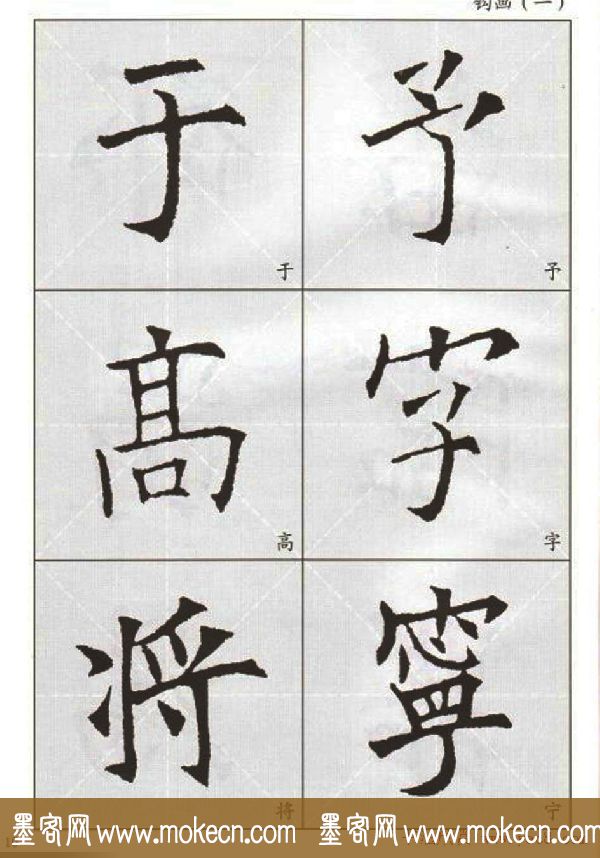 钩画（一）
于 予
于 予
髙 字
高 字
将 寧
将 宁
墨客网 www.mokecn.com 墨客网 www.mokecn.com